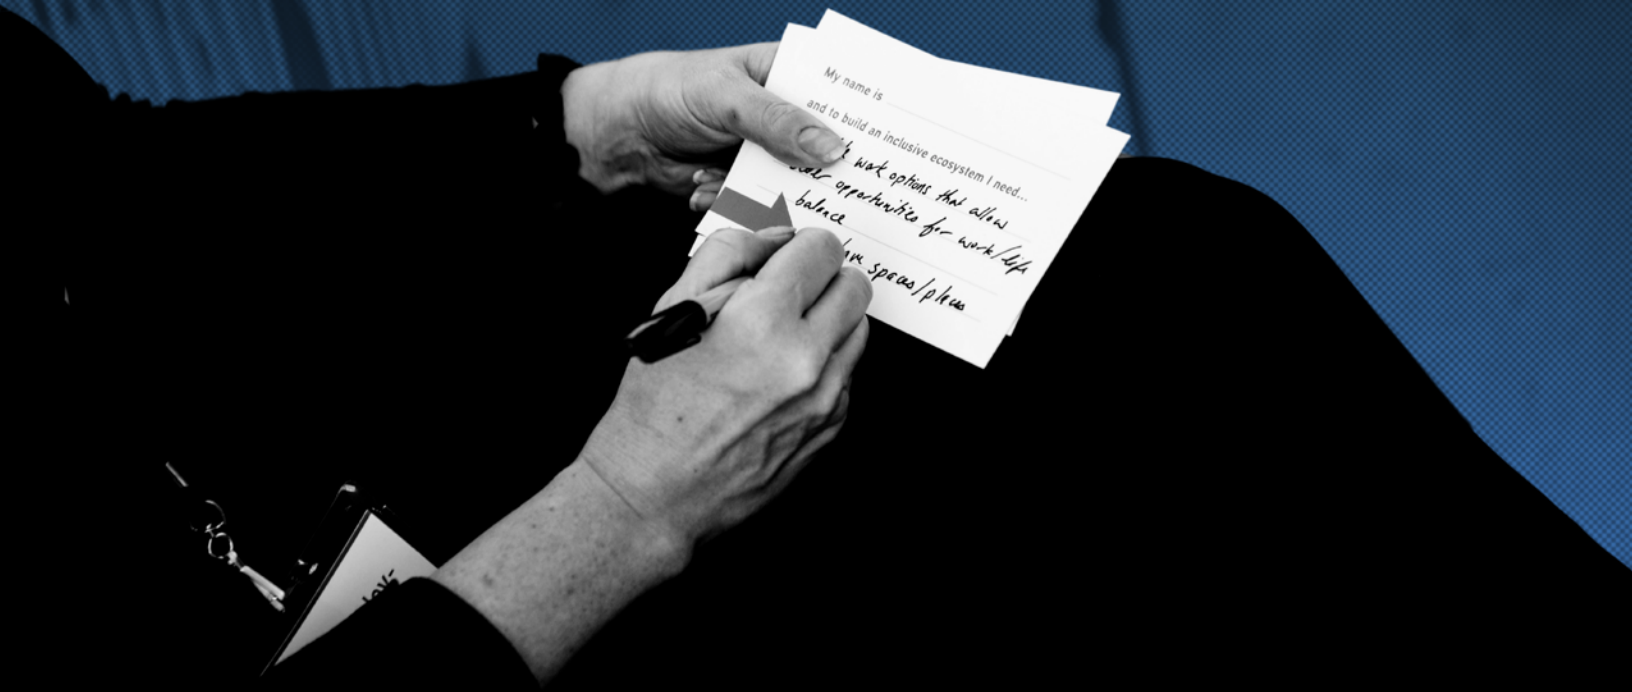 My name is
and to build an inclusive ecosystem I need...
work options that allow
opportunities for work/life
balance
spaces/places